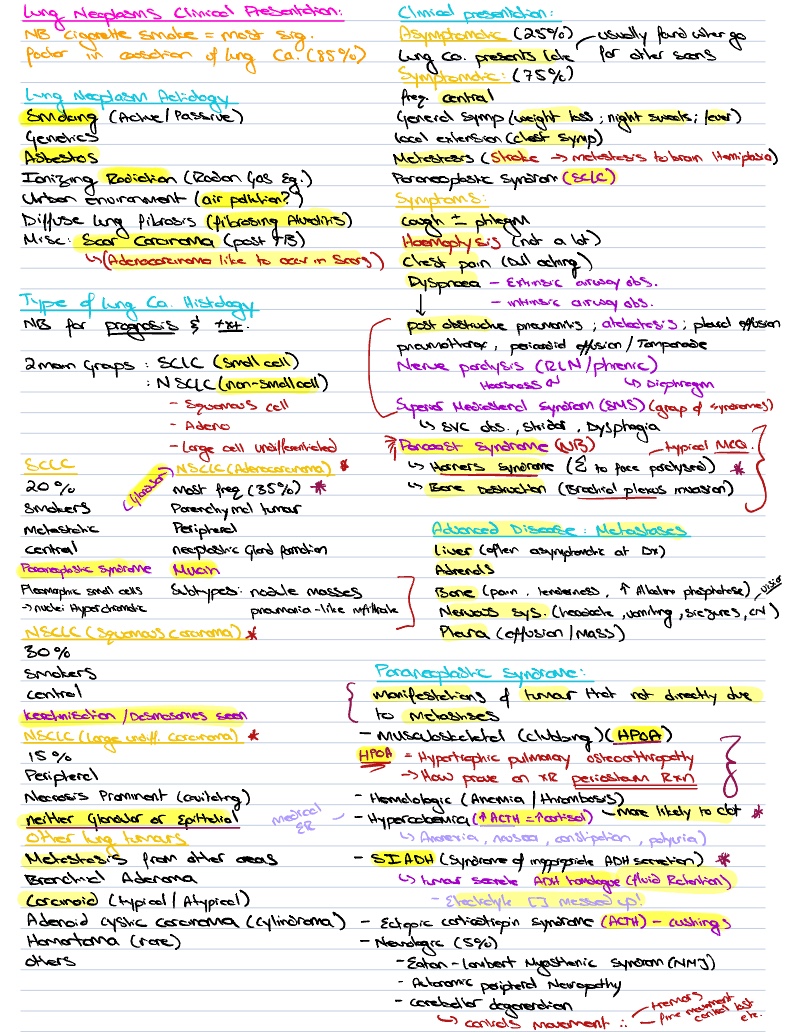 Lung Neoplasms Clinical Presentation:
NB cigarette smoke = most sig.
factor in causation of lung Ca. (85%)
Lung Neoplasm Aetiology
Smoking (Active/Passive)
Genetics
Asbestos
Ionizing Radiation (Radon Gas Eg.)
Urban environment (air pollution?)
Diffuse lung fibrosis (fibrosing Alveolitis)
Misc: Scar Carcinoma (post TB)
↳(Adenocarcinoma like to occur in Scars)
Type of Lung Ca. Histology
NB for prognosis & txt.
2 main Groups: SCLC (small cell)
: NSCLC (non-small cell)
- Squamous cell
- Adeno
- Large cell undifferentiated
SCLC
20%
smokers
metastatic
central
Paraneoplastic syndrome
Pleomorphic small cells
→ nuclei Hyperchromatic
(Glandular) NSCLC (Adenocarcinoma) *
most freq (35%) - *
Parenchymal tumour
Peripheral
neoplastic Gland formation
Mucin
Subtypes: nodule masses
pneumonia-like infiltrate
NSCLC (Squamous carcinoma) *
30%
smokers
central
keratinisation / Desmosomes seen
NSCLC (Large undiff. carcinoma) *
15%
Peripheral
Necrosis Prominent (cavitating)
neither Glandular or Epithelial
Other lung tumours
Metastasis from other areas
Bronchial Adenoma
Carcinoid (typical / Atypical)
Adenoid cystic carcinoma (cylindroma)
Hamartoma (rare)
others
Clinical presentation:
Asymptomatic (25%) usually found when go
Lung Ca. presents late for other scans
Symptomatic: (75%)
freq. central
General symp (weight loss; night sweats; fever)
local extension (chest symp)
Metastasis (Stroke → metastasis to brain Hemiplasia)
Paraneoplastic Syndrom (SCLC)
Symptoms:
cough ± phlegm
Haemoptysis (not a lot)
Chest pain (Dull aching)
Dyspnoea - Extrinsic airway obs.
- intrinsic airway obs.
post obstructive pneumonia; atelectesis; pleural effusion
pneumothorax, pericardial effusion / Tamponade
Nerve paralysis (RLN/phrenic)
Hoarsness ↵ ↳ Diaphragm
Superior Mediastinal Syndrom (SMS) (group of syndromes)
↳ SVC obs., Stridor, Dysphagia
Pancoast Syndrome (NB) - typical MCQ.
↳ Horners Syndrome (Σ to face paralysed) - *
↳ Bone Destruction (Brachial plexus invasion)
Advanced Disease: Metastases
Liver (often asymptomatic at Dx)
Adrenals
Bone (pain, tenderness, ↑ Alkaline phosphatase)
Nervous sys. (headache, vomiting, siezures, CN)
Pleura (effusion/mass)
Paraneoplastic Syndrome:
manifestations of tumour that not directly due
to metastises
- musculoskeletal (clubbing) (HPOA)
HPOA = Hypertrophic pulmonary osteoarthropathy
→ How prove on XR periosteum Rxn
- Hematologic (Anemia / thrombosis) - More likely to clot *
- Hypercalcemia (↑ACTH = ↑cortisol)
medical ER
↳ Anorexia, nausea, constipation, polyuria)
- SIADH (Syndrome of inappropriate ADH secretion) *
↳ tumour secrete ADH homologue (fluid Retention)
- Electrolyte [] messed up!
- Ectopic corticotropin syndrome (ACTH) - cushings
- Neurologic (5%)
- Eaton-Lambert Myasthenic Syndrom (NMJ)
- Autonomic peripheral Neuropathy
- cerebellar degeneration
↳ controls movement ∴ - tremors
- fine movement control lost etc.